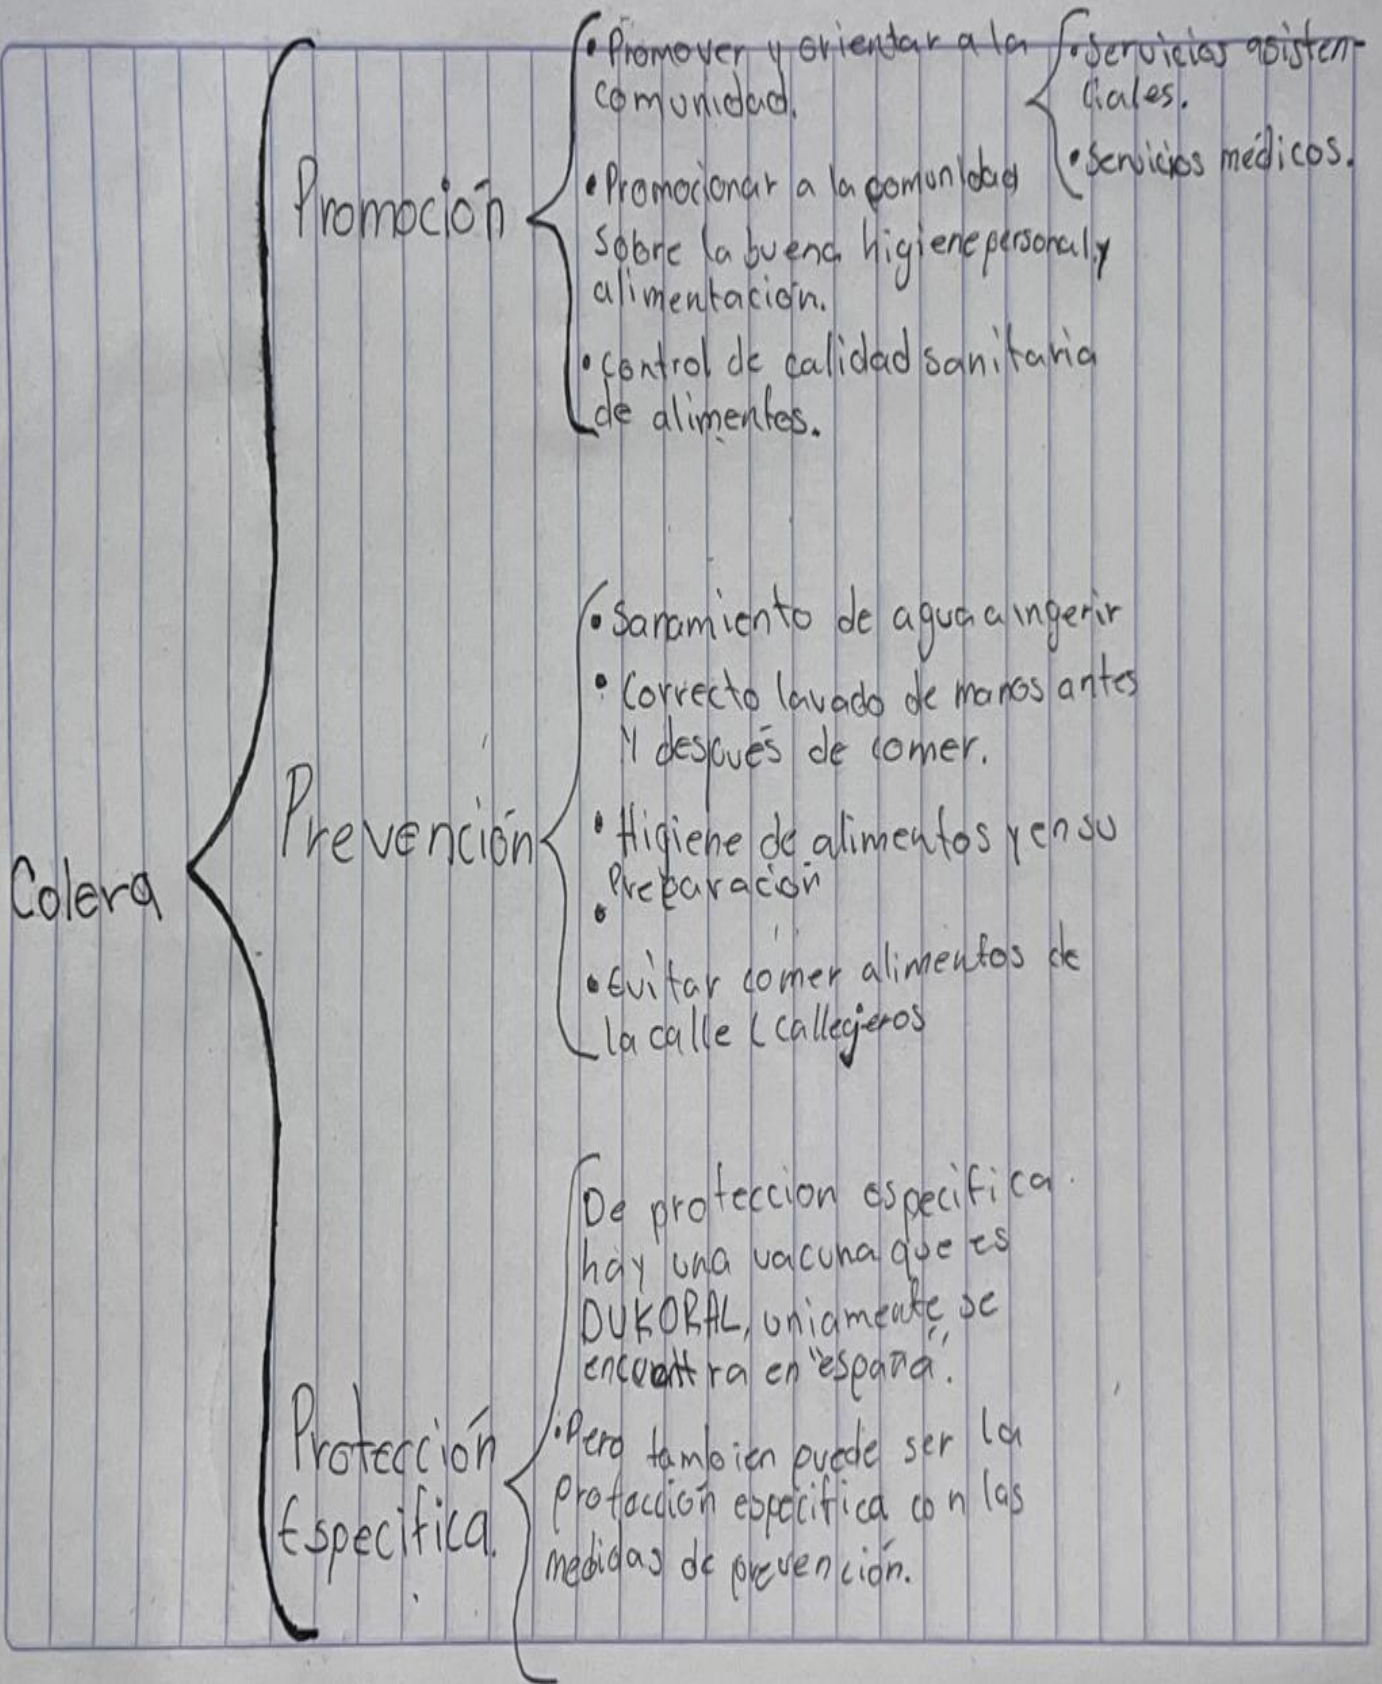 Colera
Promoción
• Promover y orientar a la
comunidad.
• Servicios asisten-
ciales.
• Servicios médicos.
• Promocionar a la comunidad
sobre la buena higiene personal y
alimentación.
• Control de calidad sanitaria
de alimentos.
Prevención
• Sanamiento de agua a ingerir
• Correcto lavado de manos antes
y después de comer.
• Higiene de alimentos y en su
preparación
•
• Evitar comer alimentos de
la calle ( callegeros
Protección
Especifica.
De proteccion especifica.
hay una vacuna que es
DUKORAL, uniamente se
encuentra en "españa".
• Pero tambien puede ser la
protacción especifica con las
medidas de prevención.